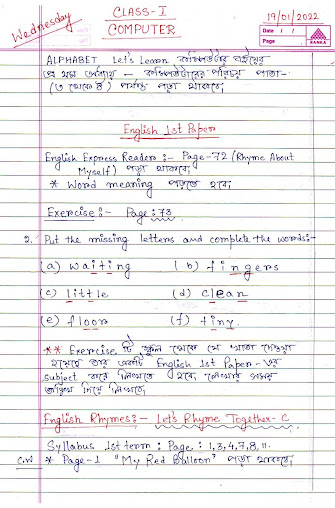 Wednesday
CLASS-I
COMPUTER
19/01/2022
Date / /
Page
RANKA
ALPHABET Let's Learn কম্পিউটার বইয়ের
প্রথম অধ্যায় - কম্পিউটারের পরিচয় পাতা-
(৩ থেকে ৪) পর্যন্ত পড়া থাকবে।
English 1st Paper
English Express Reader :- Page-72 (Rhyme About
Myself) পড়া থাকবে।
* Word meaning পড়তে হবে।
Exercise :- Page : 73
2. Put the missing letters and complete the words:-
(a) waiting (b) fingers
(c) little (d) clean
(e) floor (f) tiny.
** Exercise টি স্কুল থেকে যে খাতা দেওয়া
হয়েছে তার একটি English 1st Paper-এর
subject করে লিখতে হবে, লেখার সময়
তারিখ দিয়ে লিখবে।
English Rhymes :- Let's Rhyme Together-C
Syllabus 1st term : Page : 1, 3, 4, 7, 8, 11.
C.W * Page-1 "My Red Balloon" পড়া থাকবে।